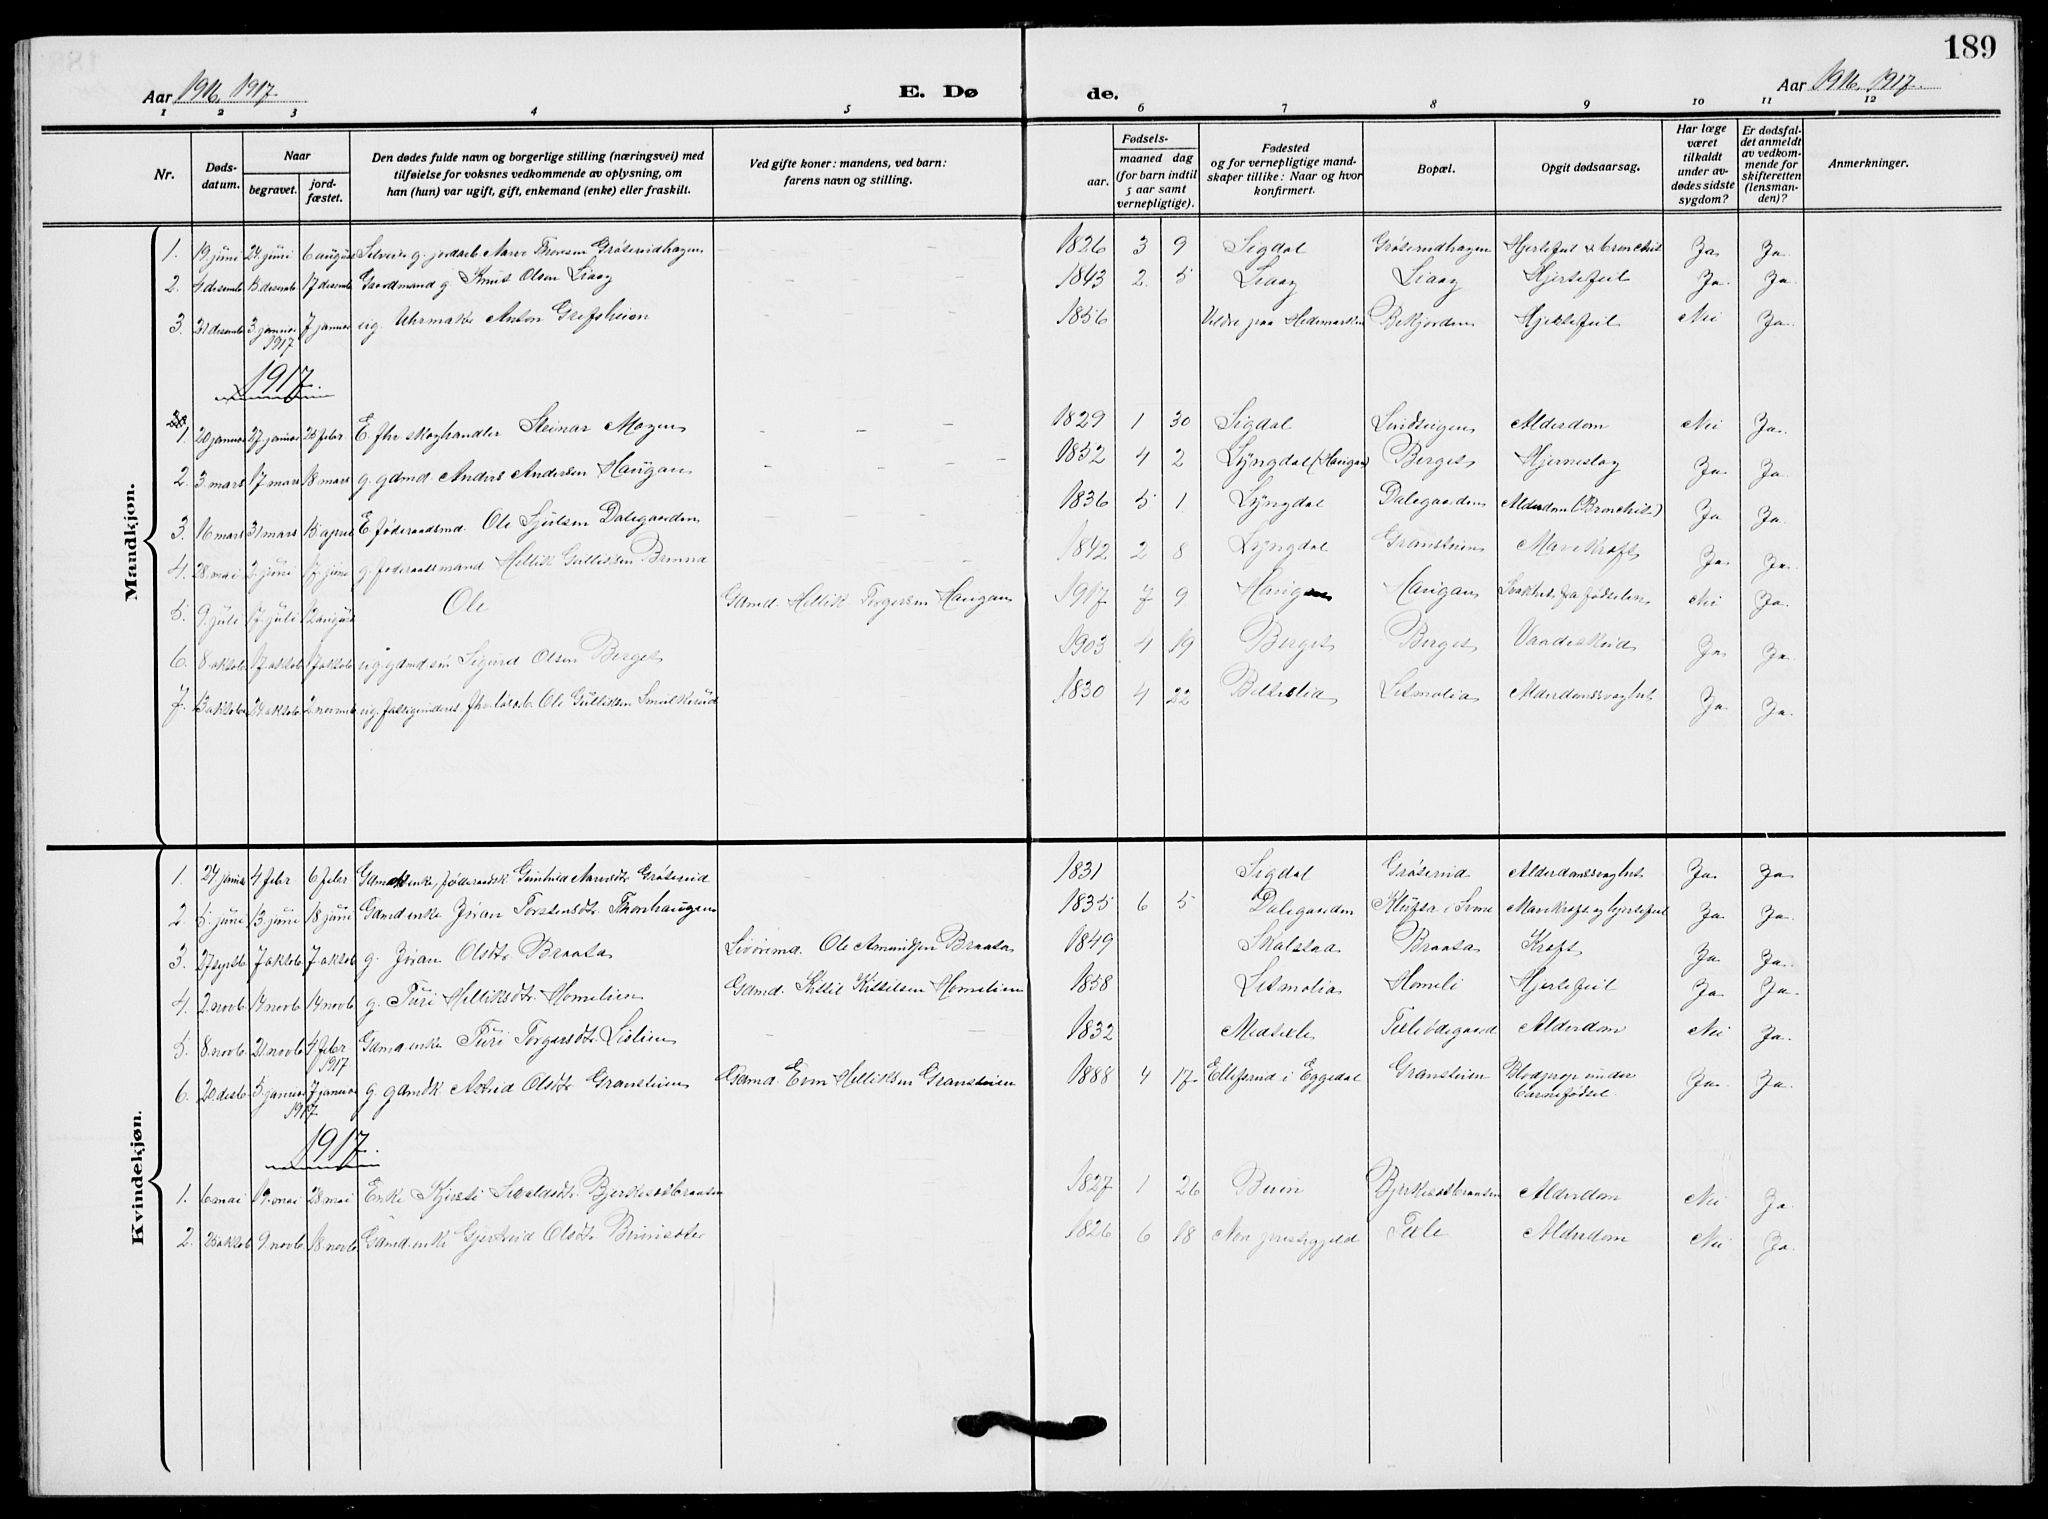 189
Aar 1916, 1917.
E. Dø de.
Aar 1916, 1917.
1 2 3 4 5 6 7 8 9 10 11 12
Nr.
Døds-
datum.
Naar
begravet.
jord-
fæstet.
Den dødes fulde navn og borgerlige stilling (næringsvei) med
tilføielse for voksnes vedkommende av oplysning, om
han (hun) var ugift, gift, enkemand (enke) eller fraskilt.
Ved gifte koner: mandens, ved barn:
farens navn og stilling.
Fødsels-
aar.
maaned dag
(for barn indtil
5 aar samt
vernepligtige).
Fødested
og for vernepligtige mand-
skaper tillike: Naar og hvor
konfirmert.
Bopæl.
Opgit dødsaarsag.
Har læge
været
tilkaldt
under av-
dødes sidste
sygdom?
Er dødsfal-
det anmeldt
av vedkom-
mende for
skifteretten
(lensman-
den)?
Anmerkninger.
Mandkjøn.
1. 19 juni 24 juni 6 august Selveier g. jordarb. Narve Thoresen Grøserudhagen 1826 3 9 Sigdal Grøserudhagen Hjertefeil & bronchit Ja Ja.
2. 4 desemb 13 desemb 17 desemb Gaardmand g. Knut Olsen Liaay 1843 2 5 Liaay Liaay Hjertefeil Ja. Ja.
3. 21 desemb 3 januar 1917 7 januar ug. Uhrmaker Anton Grefsheim 1856 Veldre paa Hedemarken Bekjorden Hjertefeil Nei Ja.
1917.
1. 20 januar 27 januar 25 febr E. fhv skoghandler Steinar Mogens 1829 1 30 Sigdal Alderdom Nei Ja.
2. 3 mars 17 mars 18 mars g. gdmd. Anders Andersen Haugan 1852 4 2 Lyngdal (Haugan) Berget Hjerneslag Ja. Ja.
3. 16 mars 31 mars 15 april E. føderaadsmd. Ole Sjulsen Dalegaarden 1836 5 1 Lyngdal Dalegaarden Alderdom (Bronchit) Ja Ja.
4. 28 mai 2 juni 17 juni g. føderaadsmand Hellik Gulliksen Brunna 1842 2 8 Lyngdal Gransteien Mavekræft Ja. Ja.
5. 9 juli 17 juli 12 august Ole Gdmd. Hellik Torgersen Haugan 1917 7 9 Haugan Haugan Svakhet fra fødselen Nei Ja.
6. 8 oktob 17 oktob 17 oktob ug gdmd søn Sigurd Olsen Berget 1903 4 19 Berget Berget Vandeskud Ja Ja.
7. 13 oktob 24 oktob 2 novemb ug. fattigunderst. fhv. løsarb. Ole Gulliksen Smulkerud 1830 4 22 Letmolia Alderdomssvaghet Ja. Ja.
Kvindekjøn.
1. 24 januar 4 febr 6 febr Gdmd enke, føderaadsk Gunhild Narvesdtr Grøserud 1831 Sigdal Grøserud Alderdomssvaghet Ja. Ja
2. 5 juni 13 juni 18 juni Gaardm enke Jøran Torstensdtr. Thonhaugen 1835 6 5 Dalegaarden Klufta i Svene Mavekræft og hjertefeil Ja. Ja.
3. 27 septb 7 oktob 7 oktob g. Jøran Olsdtr Braata Ole Amundsen Braata 1849 Skalstaa Braata Kræft Ja Ja.
4. 2 novb 14 novb 14 novb g. Turi Helliksdtr. Homelien Gdmd. Kittil Kittilsen Homelien 1858 Letmolia Homeli Hjertefeil Ja. Ja.
5. 8 novb 21 novb 4 febr 1917 Gdmd enke Turi Torgersdtr. Lislien 1832 Medtekle Alderdom Nei Ja.
6. 20 desb 5 januar 1917 7 januar g. gdmdk Astrid Olsdtr Gransteien Gdmd. Even Helliksen Gransteien 1888 4 17 Ellefsrud i Eggedal Gransteien Blodprop under barnefødsel. Ja. Ja.
1917.
1. 6 mai 19 mai 28 mai Enke Kjersti Sivaldsdtr. Bjerkesetbraaten 1827 1 26 Beiin Bjerkesetbraaten Alderdom Nei Ja.
2. 25 oktob 9 novb 18 novb Gdmd. enke Gjertrud Olsdtr 1826 6 18 Nore prestegjeld Alderdom Nei Ja.